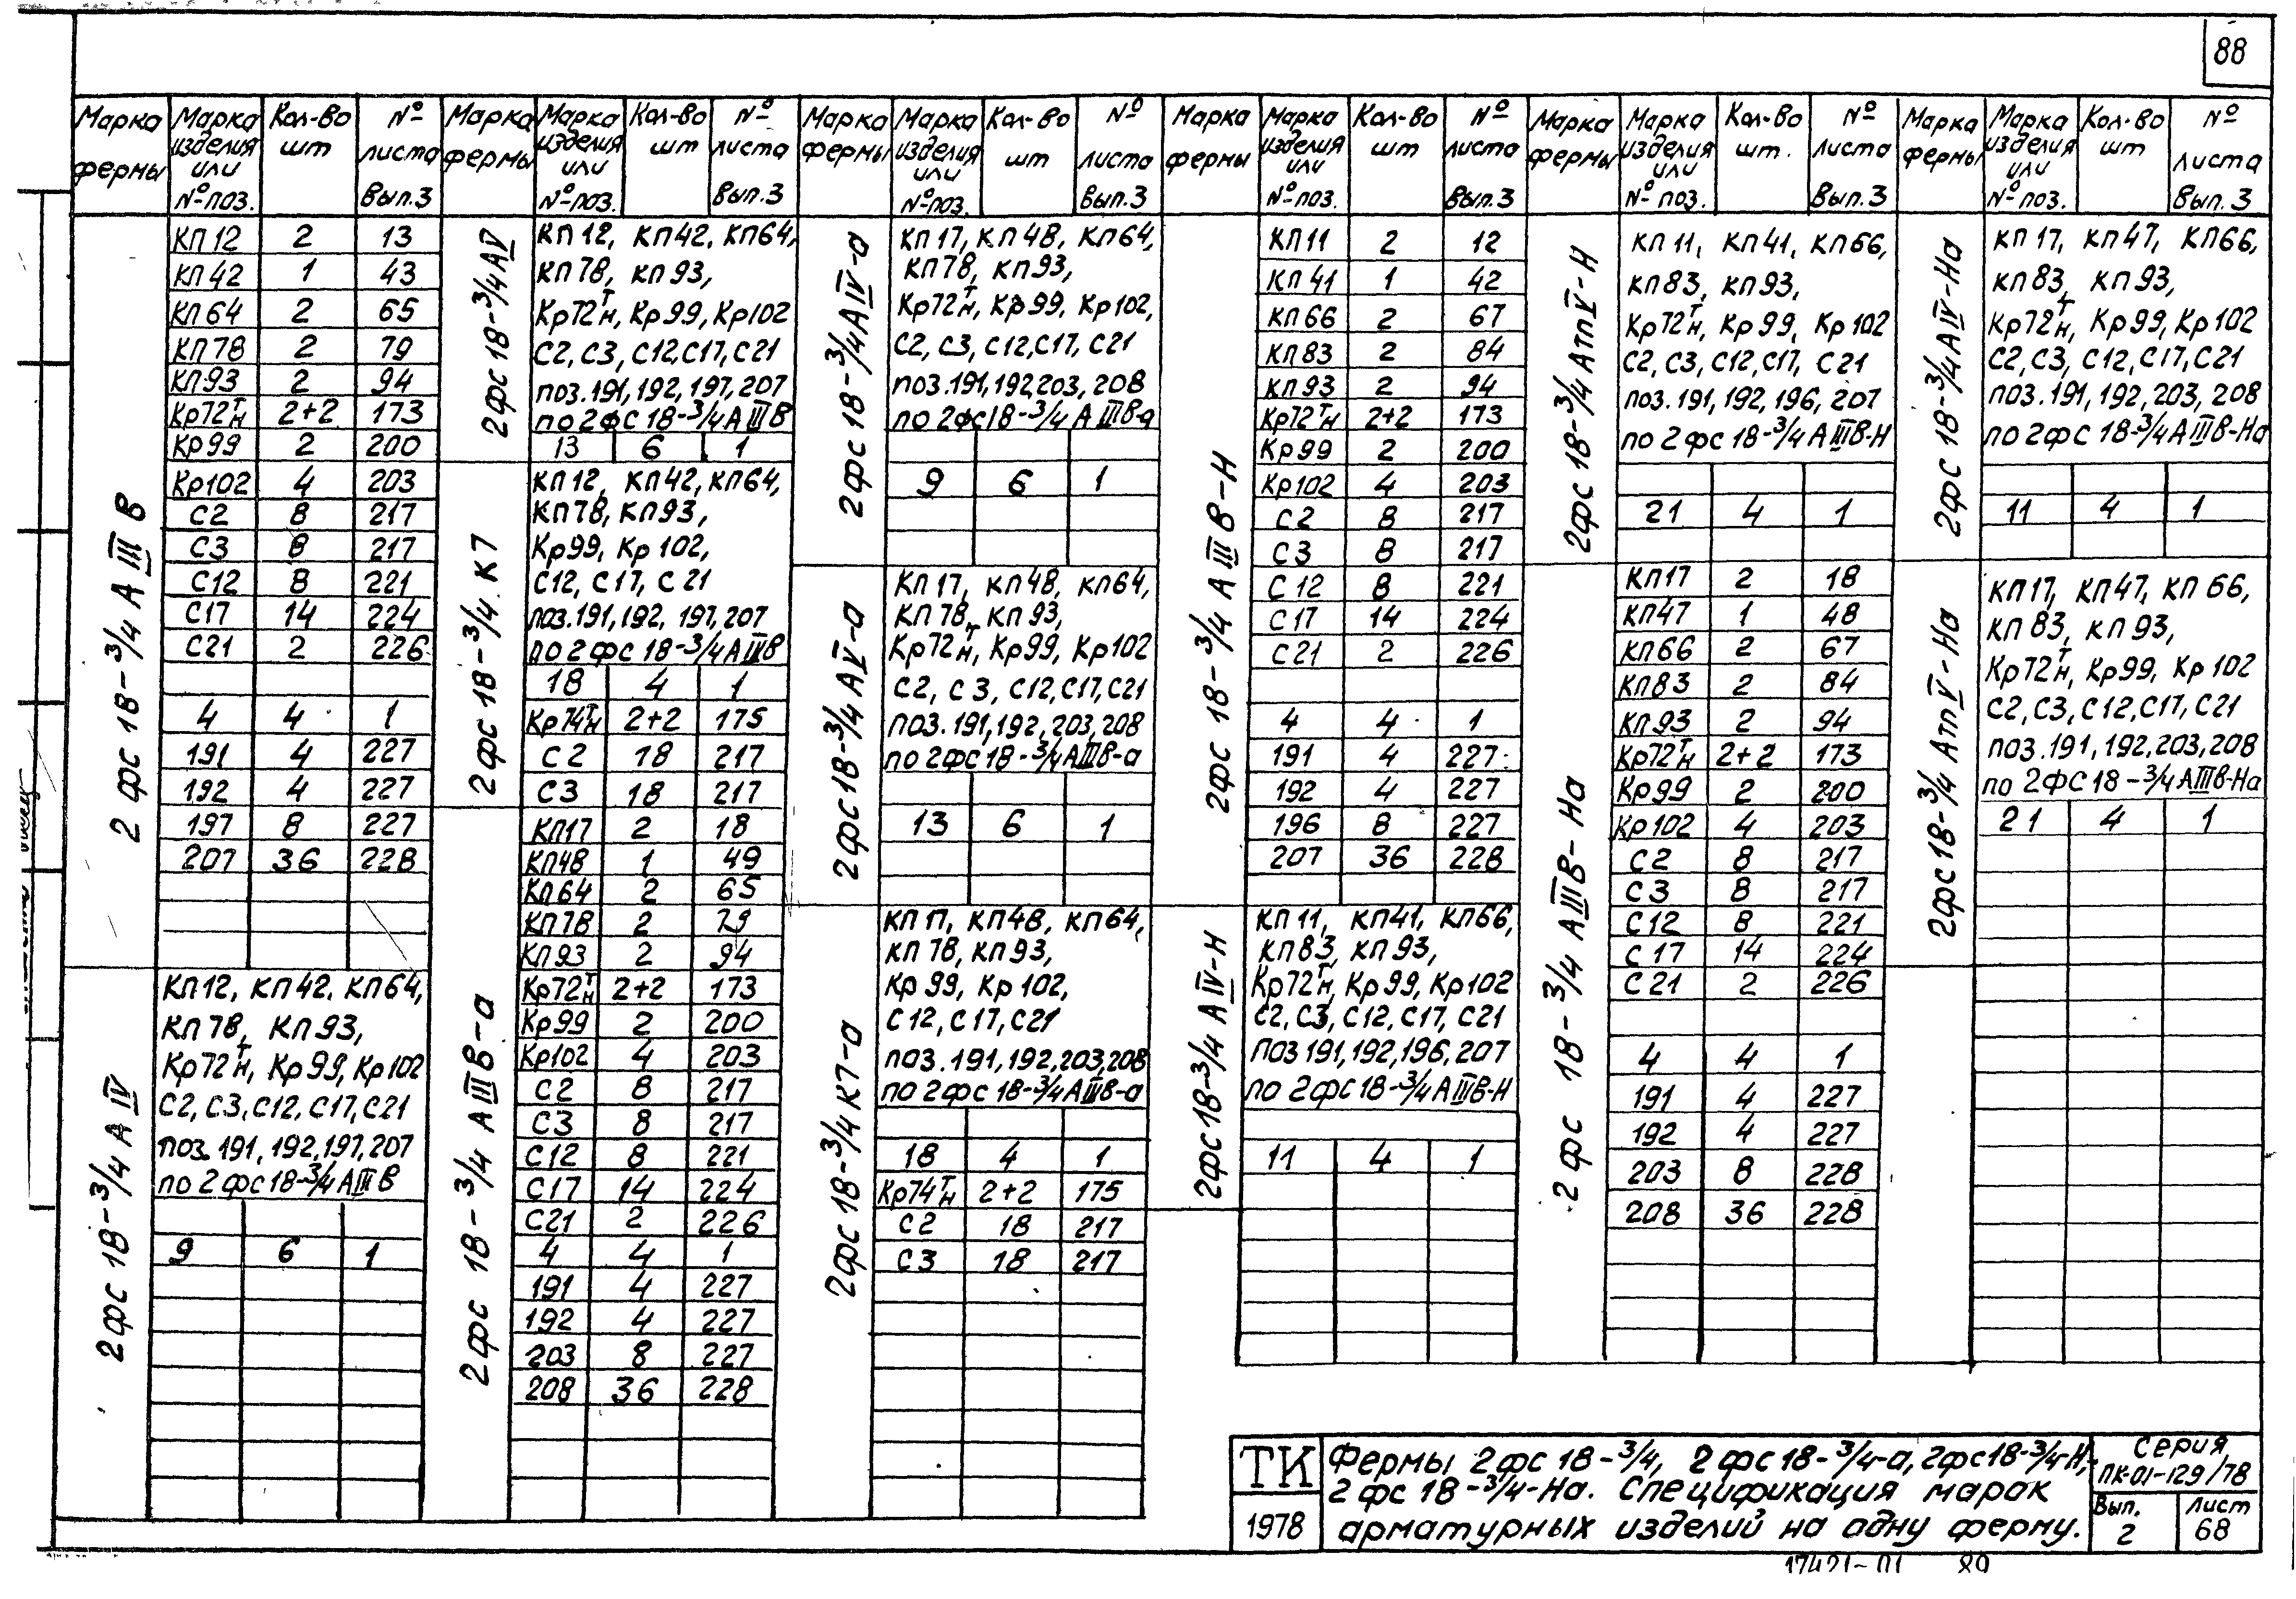 88
Марка фермы | Марка изделия или № поз. | Кол-во шт | № листа Вып.3
2 фс 18-3/4 А III В
КП12 2 13
КП42 1 43
КП64 2 65
КП78 2 79
КП93 2 94
Кр72 т/н 2+2 173
Кр99 2 200
Кр102 4 203
С2 8 217
С3 8 217
С12 8 221
С17 14 224
С21 2 226
4 4 1
191 4 227
192 4 227
197 8 227
207 36 228
2 фс 18-3/4 А IV
КП12, КП42, КП64,
КП78, КП93,
Кр72 т/н, Кр99, Кр102
С2, С3, С12, С17, С21
поз. 191, 192, 197, 207
по 2 фс 18-3/4 А III В
9 6 1
Марка фермы | Марка изделия или № поз. | Кол-во шт | № листа Вып.3
2фс 18-3/4 А V
КП12, КП42, КП64,
КП78, КП93,
Кр72 т/н, Кр99, Кр102
С2, С3, С12, С17, С21
поз. 191, 192, 197, 207
по 2 фс 18-3/4 А III В
13 6 1
2фс 18-3/4 К7
КП12, КП42, КП64,
КП78, КП93,
Кр99, Кр102,
С12, С17, С21
поз. 191, 192, 197, 207
по 2 фс 18-3/4 А III В
18 4 1
Кр74 т/н 2+2 175
С2 18 217
С3 18 217
2 фс 18-3/4 А III В-а
КП17 2 18
КП48 1 49
КП64 2 65
КП78 2 79
КП93 2 94
Кр72 т/н 2+2 173
Кр99 2 200
Кр102 4 203
С2 8 217
С3 8 217
С12 8 221
С17 14 224
С21 2 226
4 4 1
191 4 227
192 4 227
203 8 227
208 36 228
Марка фермы | Марка изделия или № поз. | Кол-во шт | № листа Вып.3
2фс 18-3/4 А IV-а
КП17, КП48, КП64,
КП78, КП93,
Кр72 т/н, Кр99, Кр102,
С2, С3, С12, С17, С21
поз. 191, 192, 203, 208
по 2фс 18-3/4 А III В-а
9 6 1
2фс 18-3/4 А V-а
КП17, КП48, КП64,
КП78, КП93,
Кр72 т/н, Кр99, Кр102
С2, С3, С12, С17, С21
поз. 191, 192, 203, 208
по 2фс 18-3/4 А III В-а
13 6 1
2фс 18-3/4 К7-а
КП17, КП48, КП64,
КП78, КП93,
Кр99, Кр102,
С12, С17, С21
поз. 191, 192, 203, 208
по 2 фс 18-3/4 А III В-а
18 4 1
Кр74 т/н 2+2 175
С2 18 217
С3 18 217
Марка фермы | Марка изделия или № поз. | Кол-во шт | № листа Вып.3
2фс 18-3/4 А III В-Н
КП11 2 12
КП41 1 42
КП66 2 67
КП83 2 84
КП93 2 94
Кр72 т/н 2+2 173
Кр99 2 200
Кр102 4 203
С2 8 217
С3 8 217
С12 8 221
С17 14 224
С21 2 226
4 4 1
191 4 227
192 4 227
196 8 227
207 36 228
2фс 18-3/4 А IV-Н
КП11, КП41, КП66,
КП83, КП93,
Кр72 т/н, Кр99, Кр102
С2, С3, С12, С17, С21
поз 191, 192, 196, 207
по 2 фс 18-3/4 А III В-Н
11 4 1
Марка фермы | Марка изделия или № поз. | Кол-во шт. | № листа Вып.3
2фс 18-3/4 Атп V-Н
КП11, КП41, КП66,
КП83, КП93,
Кр72 т/н, Кр99, Кр102
С2, С3, С12, С17, С21
поз. 191, 192, 196, 207
по 2 фс 18-3/4 А III В-Н
21 4 1
2 фс 18-3/4 А III В-На
КП17 2 18
КП47 1 48
КП66 2 67
КП83 2 84
КП93 2 94
Кр72 т/н 2+2 173
Кр99 2 200
Кр102 4 203
С2 8 217
С3 8 217
С12 8 221
С17 14 224
С21 2 226
4 4 1
191 4 227
192 4 227
203 8 228
208 36 228
Марка фермы | Марка изделия или № поз. | Кол-во шт | № листа Вып.3
2фс 18-3/4 А IV-На
КП17, КП47, КП66,
КП83, КП93,
Кр72 т/н, Кр99, Кр102
С2, С3, С12, С17, С21
поз. 191, 192, 203, 208
по 2фс 18-3/4 А III В-На
11 4 1
2фс 18-3/4 Атп V-На
КП17, КП47, КП66,
КП83, КП93,
Кр72 т/н, Кр99, Кр102
С2, С3, С12, С17, С21
поз. 191, 192, 203, 208
по 2ФС 18-3/4 А III В-На
21 4 1
ТК
1978
Фермы 2 фс 18-3/4, 2 фс 18-3/4-а, 2фс 18-3/4-Н,
2 фс 18-3/4-На. Спецификация марок
арматурных изделий на одну ферму.
Серия
ПК-01-129/78
Вып. 2
Лист 68
17421-01 89